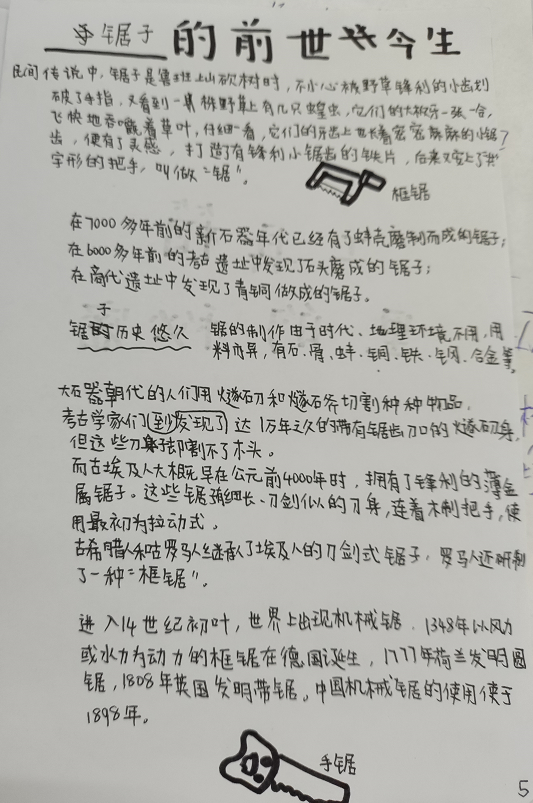 手锯子的前世今生
民间传说中,锯子是鲁班上山砍树时,不小心被野草锋利的小齿划
破了手指,又看到一集株野草上有几只蝗虫,它们的大板牙一张一合,
飞快地吞嚼着草叶,仔细一看,它们的牙齿上也长着密密麻麻的小锯
齿,便有了灵感,打造了有锋利小锯齿的铁片,后来又安上了
字形的把手,叫做“锯”。
框锯
在7000多年前的新石器年代已经有了蚌壳磨制而成的锯子;
在6000多年前的考古遗址中发现了石头磨成的锯子;
在商代遗址中发现了青铜做成的锯子。
锯子的历史悠久
锯的制作由于时代、地理环境不同,用
料而异,有石、骨、蚌、铜、铁、钢、合金等。
大石器朝代的人们用燧石刀和燧石斧切割种种物品。
考古学家们到发现了达1万年之久的带有锯齿刀口的燧石刀身,
但这些刀身却割不了木头。
而古埃及人大概早在公元前4000年时,拥有了锋利的薄金
属锯子。这些锯强细长、刀剑似的刀身,连着木制把手,使
用最初为拉动式。
古希腊人和咕罗马人继承了埃及人的刀剑式锯子,罗马人还研制
了一种“框锯”。
进入14世纪初叶,世界上出现机械锯.1348年以风力
或水力为动力的框锯在德国诞生,1777年荷兰发明圆
锯,1808年英国发明带锯。中国机械锯的使用使于
1898年。
手锯
5